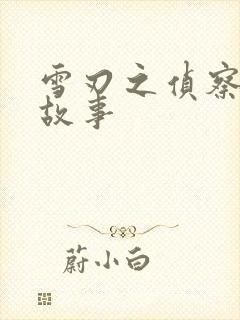 雪刃之偵察
故事
蔚小白